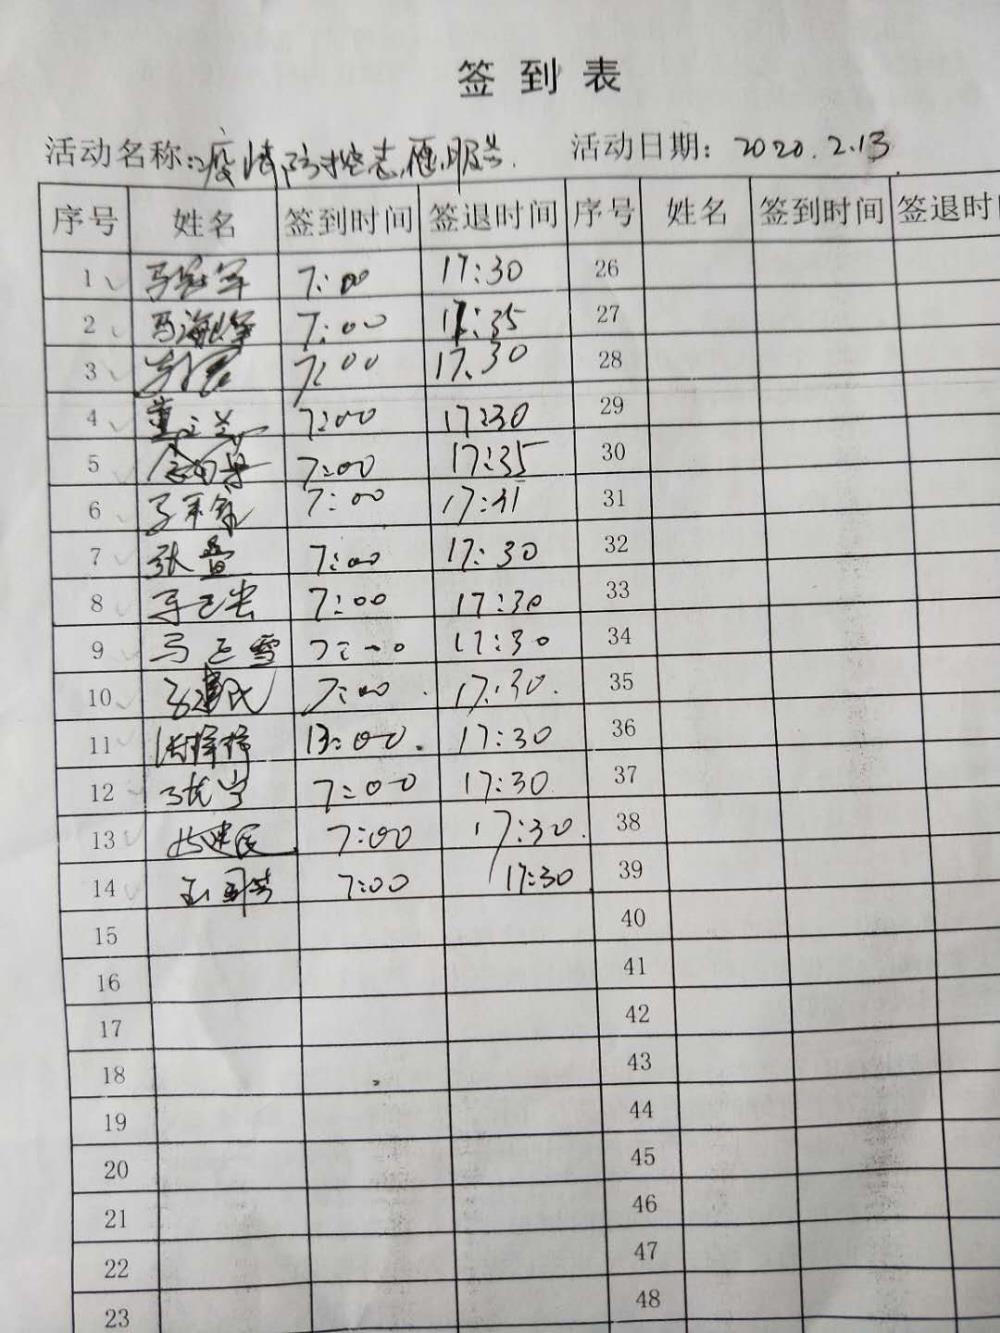 签到表
活动名称:疫情防控志愿服务. 活动日期: 2020.2.13
序号 姓名 签到时间 签退时间 序号 姓名 签到时间 签退时
1 7:00 17:30 26
2 马海峰 7:00 17:35 27
3 7:00 17:30 28
4 董 7:00 17:30 29
5 7:00 17:35 30
6 7:00 17:31 31
7 张 7:00 17:30 32
8 7:00 17:30 33
9 马正雪 7:00 17:30 34
10 建民 7:00 17:30. 35
11 13:00. 17:30 36
12 7:00 17:30 37
13 建民 7:00 17:30. 38
14 7:00 17:30 39
15 40
16 41
17 42
18 43
19 44
20 45
21 46
22 47
23 48